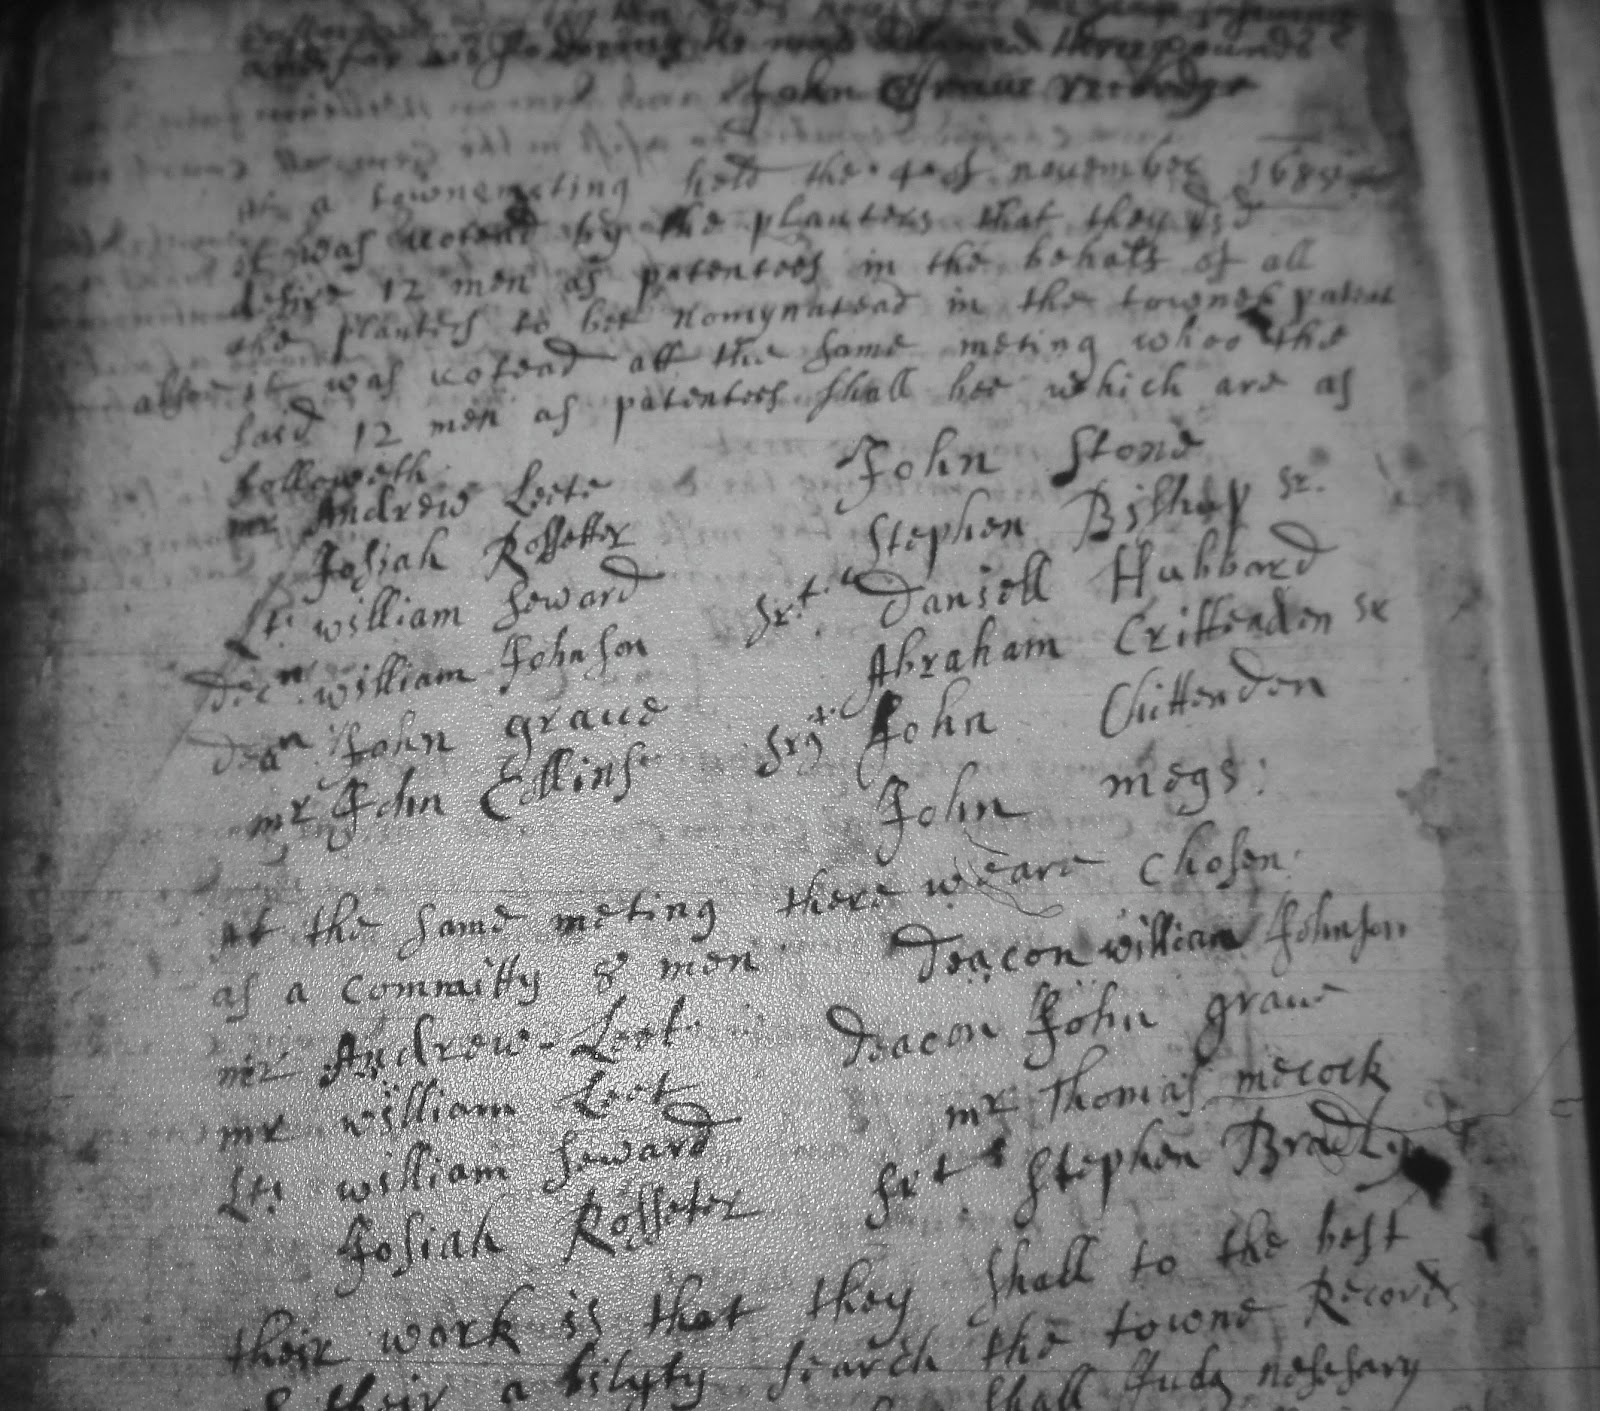 John Graue recordr
At a townemeting held the 4 of november 168
it was voted by the planters that they did
desire 12 men as patentees in the behalf of all
the planters to bee nomynatead in the townes patent
allso it was votead att the same meting whoo the
said 12 men as patentees shall bee which are as
followeth
mr Andrew Leete John Stone
Josiah Rossetter Stephen Bishop sr.
Lt: william Seward Srt. Daniell Hubbard
Decn. william Johnson Abraham Crittenden sr
Dean John graue Srgt. John Chittenden
mr John Collins John megs:
At the same meting there weare Chosen:
as a committy 8 men Deacon william Johnson
mr Andrew Leet Deacon John graue
mr william Leet mr Thomas mecock
Lt: william Seward Srt Stephen Bradly
Josiah Rosseter
their work is that they shall to the best
of their abilyty search the towne Records
shall Judg nesessary